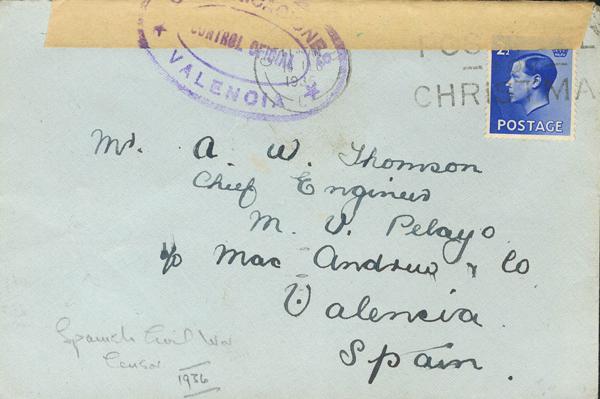 CONTROL OFICIAL
VALENCIA
1936
CHRISTMA
2½
POSTAGE
Mr. A. W. Thomson
Chief Engineer
M. V. Pelayo
c/o Mac Andrew & Co
Valencia
Spain.
Spanish Civil War
Censor
1936